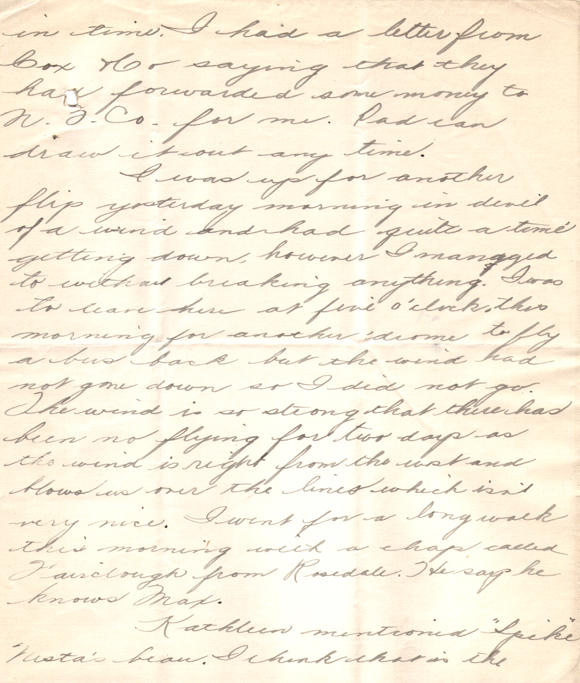 in time. I had a letter from
Cox & Co saying that they
had forwarded some money to
N. T. Co. for me. Dad can
draw it out any time.
I was up for another
flip yesterday morning in devil
of a wind and had quite a time
getting down, however I managed
to without breaking anything. I was
to leave here at five o'clock this
morning for another 'drome to fly
a bus back but the wind had
not gone down so I did not go.
The wind is so strong that there has
been no flying for two days as
the wind is right from the west and
blows us over the lines which isn't
very nice. I went for a long walk
this morning with a chap called
Fairclough from Rosedale. He says he
knows Max.
Kathleen mentioned "Spike"
Vesta's beau. I think that is the